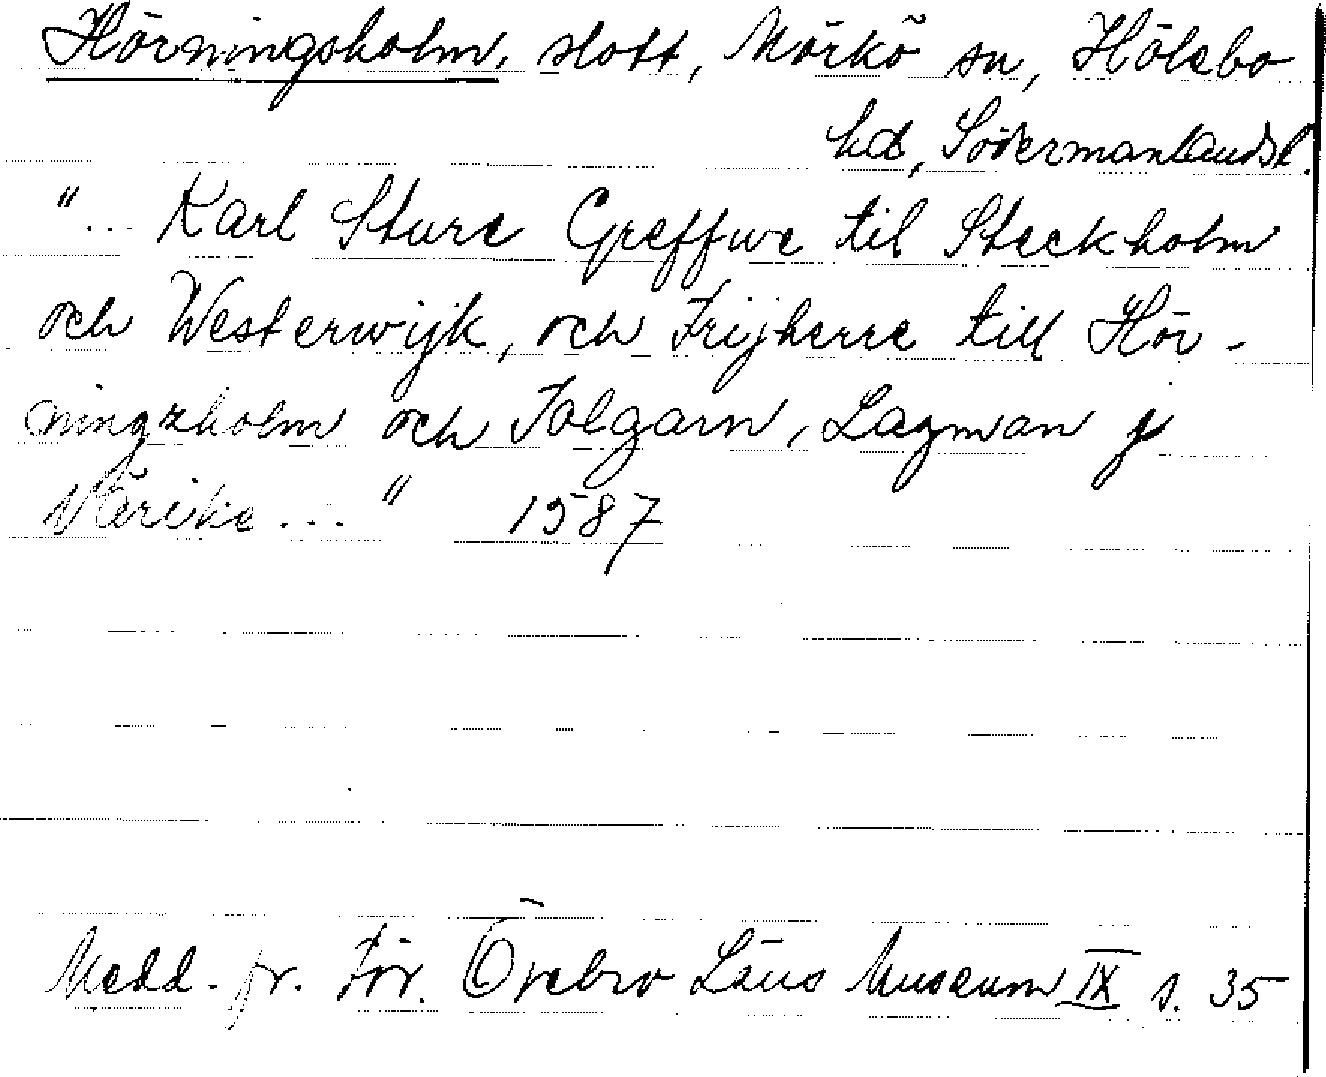 Hörningsholm, slott, Mörkö sn, Hölebo
hd, Södermanlands l.
"... Karl Sture Greffwe til Steckholm
och Westerwijk, och Frijherre till Hör-
ningzholm och Tolgarn, Lagman j
Närike..." 1587
Medd. fr. För. Örebro Läns Museum IX s. 35